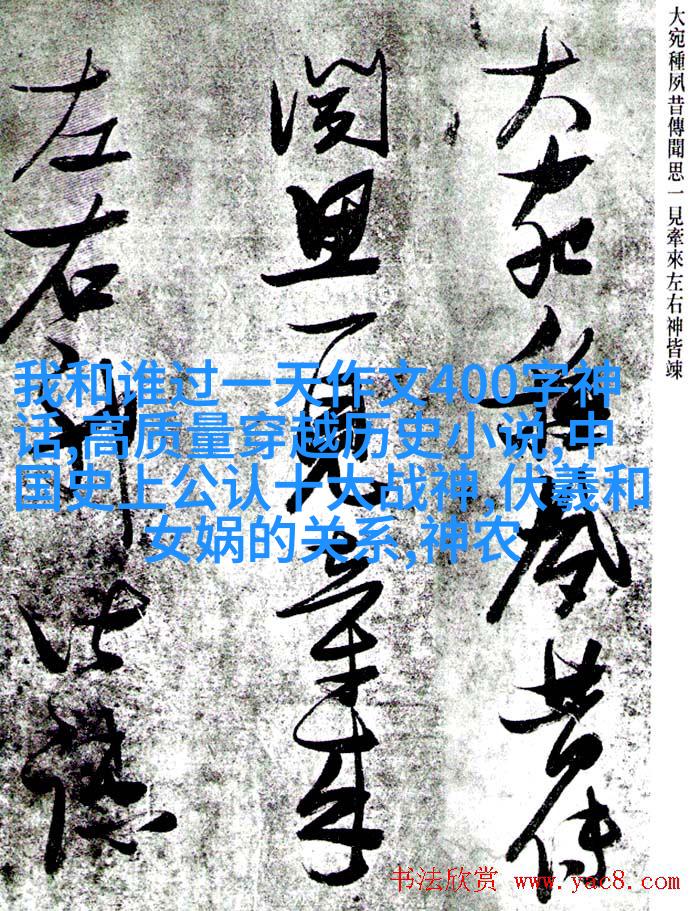 大宛種夙昔傳聞思一見牽來左右神皆竦
大宛種夙昔傳
聞思一見牽來
左右神皆竦
我和谁过一天作文400字神
话,高质量穿越历史小说,中
国史上公认十大战神,伏羲和
女娲的关系,神农
书法欣赏 www.yac8.com